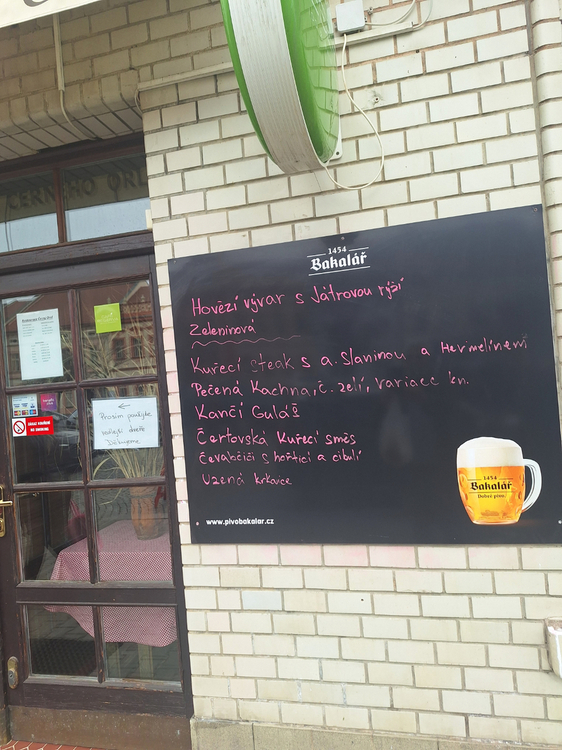 ČERNÉHO ORL
1454
Bakalář
Hovězí vývar s Játrovou rýží
Zeleninová
Kuřecí steak s a. slaninou a Hermelínem
Pečená Kachna, č. zelí, variace kn.
Kančí Guláš
Čertovská Kuřecí směs
Čevabčiči s hořticí a cibulí
Uzená krkovice
www.pivobakalar.cz
1454
Bakalář
Dobré pivo.
Prosím použijte
vedlejší dveře
Děkujeme
ZÁKAZ KOUŘENÍ
NO SMOKING